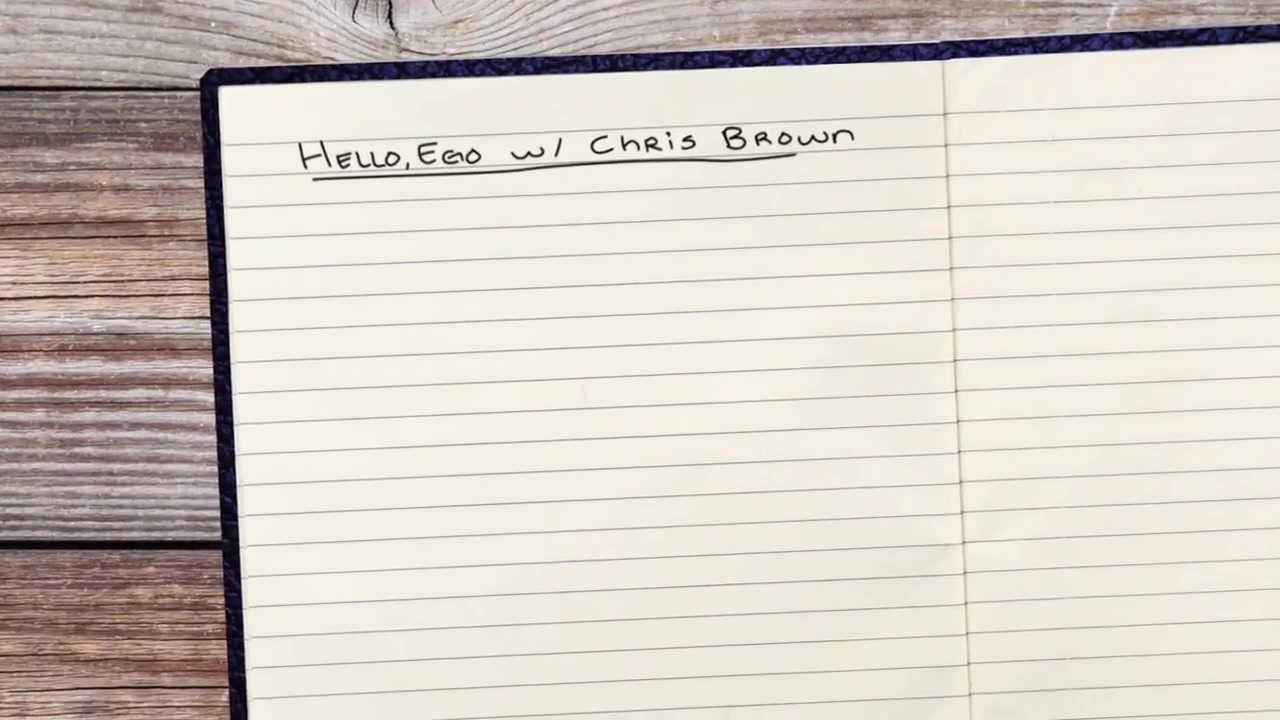 HELLO, EGO w/ ChRis BROwn